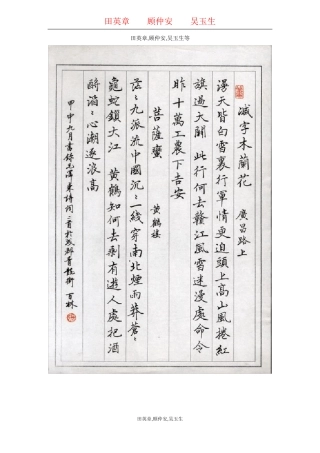 田英章 顾仲安 吴玉生
田英章,顾仲安,吴玉生等
减字木蘭花 廣昌路上
漫天皆白雪裏行軍情更迫頭上高山風捲紅
旗過大關 此行何去贛江風雪迷漫處命令
昨十萬工農下吉安
菩薩蠻 黄鶴樓
茫〻九派流中國沉〻一綫穿南北煙雨莽蒼〻
龜蛇鎖大江 黄鶴知何去剩有遊人處把酒
酹滔〻心潮逐浪高
甲申九月書録毛澤東詩詞二首於
百林
田英章,顾仲安,吴玉生